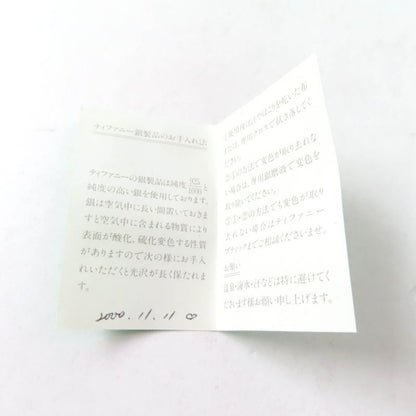 ティファニー銀製品のお手入れ法
ティファニーの銀製品は純度 925/1000 と
純度の高い銀を使用しております。
銀は空気中に長い間置いておきま
すと空気中に含まれる物質により
表面が酸化、硫化変色する性質
がありますので次の様にお手入
れいただくと光沢が長く保たれま
す。
2000. 11. 11
①使用後は
やほこりを乾いた布
又は、専用クロスで拭き落してく
ださい。
②①の方法で変色が取り去れな
い場合は、専用銀磨液で変色を
取り除いてください。
③①・②の方法でも変色が取り
去れない場合はティファニー
ブティックまでご相談くださいませ。
お願い
温泉・海水・汗などは特に避けてく
ださいます様お願い申し上げます。